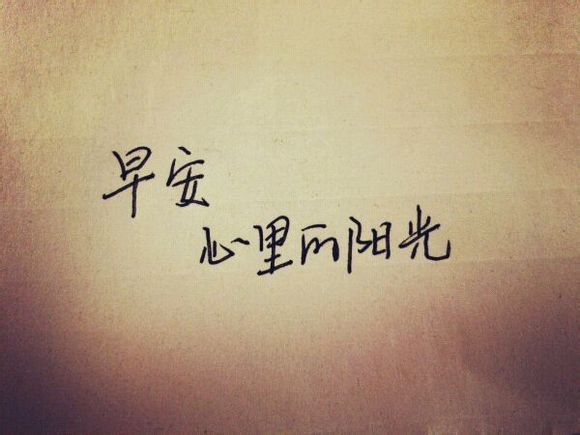 早安
心里的阳光